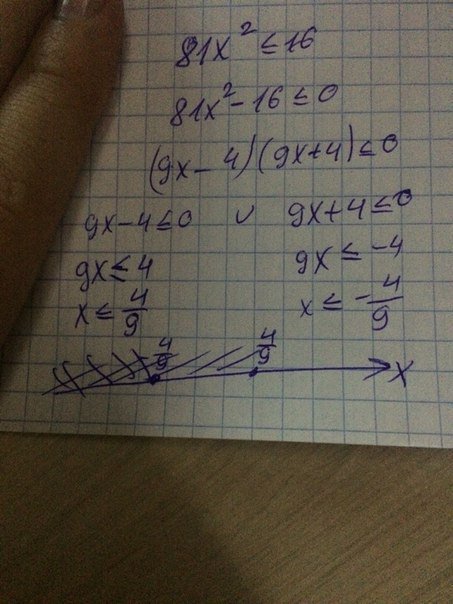 81x² ≤ 16
81x² - 16 ≤ 0
(9x - 4)(9x + 4) ≤ 0
9x - 4 ≤ 0 ∪ 9x + 4 ≤ 0
9x ≤ 4 9x ≤ -4
x ≤ 4/9 x ≤ -4/9
4/9 4/9 x